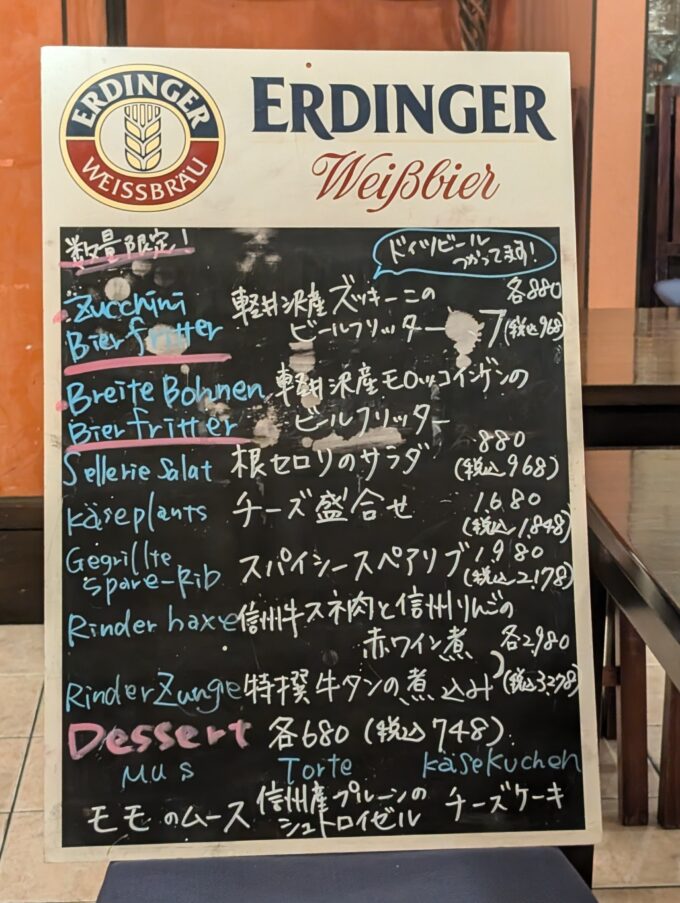 ERDINGER
WEISSBRÄU
ERDINGER
Weißbier
数量限定!
ドイツビール
つかってます!
Zucchini 軽井沢産ズッキーニの 各880
Bierfritter ビールフリッター (税込968)
Breite Bohnen 軽井沢産モロッコインゲンの
Bierfritter ビールフリッター
Sellerie Salat 根セロリのサラダ 880
(税込968)
Käseplants チーズ盛合せ 1.680
(税込1.848)
Gegrillte スパイシースペアリブ 1.980
spare-Rib (税込2.178)
Rinder haxe 信州牛スネ肉と信州りんごの
赤ワイン煮 各2980
Rinder Zunge 特撰牛タンの煮込み (税込3278)
Dessert 各680 (税込748)
Mus Torte Käsekuchen
モモのムース 信州産プルーンの チーズケーキ
シュトロイゼル